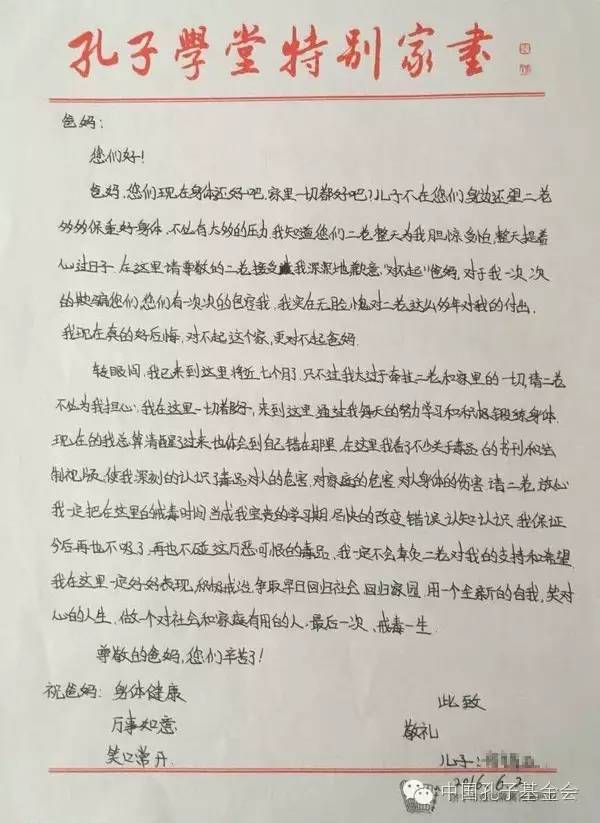 孔子學堂特别家書
爸妈：
您们好！
爸妈，您们现在身体还好吧，家里一切都好吧？儿子不在您们身边还望二老
多多保重好身体，不必有太多的压力，我知道您们二老整天为我胆惊受怕，整天提着
心过日子，在这里请尊敬的二老接受我深深地歉意，“对不起”爸妈，对于我一次次
的欺骗您们，您们有一次次的包容我，我实在无脸愧对二老这么多年对我的付出，
我现在真的好后悔，对不起这个家，更对不起爸妈.
转眼间，我已来到这里将近七个月了，只不过我太过于牵挂二老和家里的一切，请二老
不必为我担心，我在这里一切都好，来到这里，通过我每天的努力学习和积极锻练身体，
现在的我总算清醒了过来也体会到自己错在那里，在这里我看了不少关于毒品的书刊和法
制视版，使我深刻的认识了毒品对人的危害，对家庭的危害，对人身体的伤害，请二老放心
我一定把在这里的戒毒时间当成我宝贵的学习期，尽快的改变错误认知认识，我保证
今后再也不吸了，再也不碰这万恶可恨的毒品，我一定不会辜负二老对我的支持和希望
我在这里一定好好表现，积极戒治，争取早日回归社会，回归家园，用一个全新的自我，笑对
心的人生，做一个对社会和家庭有用的人，最后一次、戒毒一生.
尊敬的爸妈，您们辛苦了！
祝爸妈：身体健康
此致
万事如意
敬礼
笑口常开
儿子：
2016.6.2
中国孔子基金会